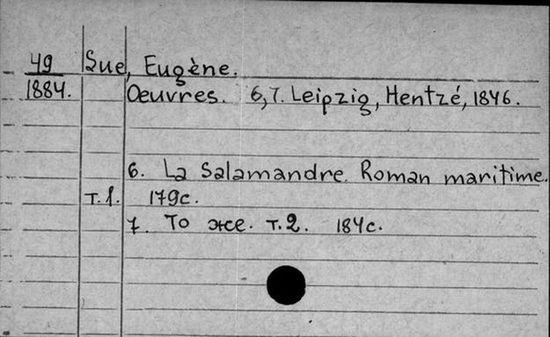 49 Sue, Eugène.
1884. Oeuvres. 6,7. Leipzig, Hentzé, 1846.
6. La Salamandre. Roman maritime.
т.1. 179с.
7. То же. т.2. 184с.